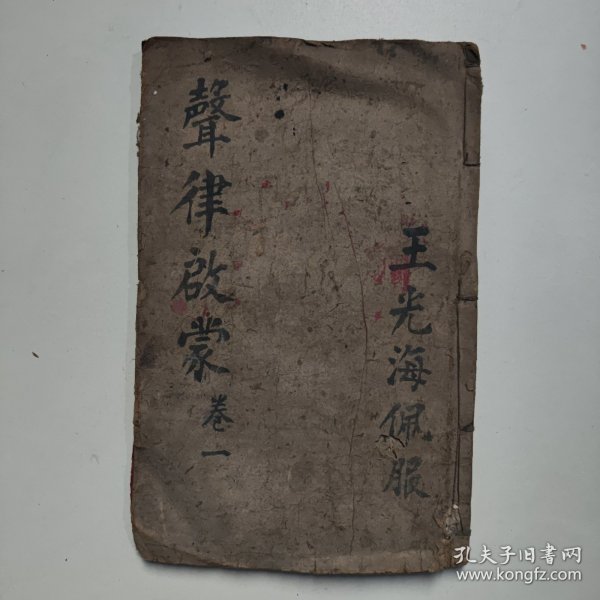 聲律啟蒙 卷一
王光海佩服
孔夫子旧书网
www.kongfz.com